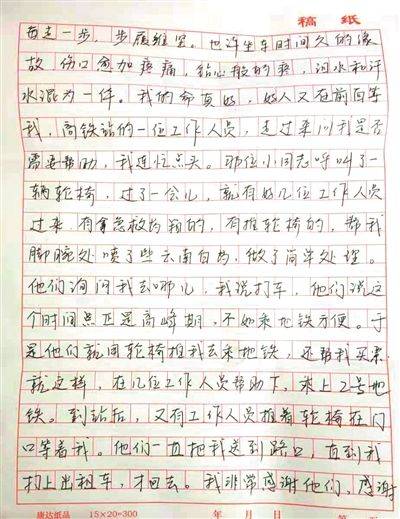 稿 纸
每走一步，步履维坚。也许坐车时间久的缘
故，伤口愈加疼痛，钻心般的疼，泪水和汗
水混为一体。我的命真好，好人又在前面等
我，高铁站的一位工作人员，走过来问我是否
需要帮助，我连忙点头。那位小同志呼叫了一
辆轮椅，过了一会儿，就有好几位工作人员
过来，有拿急救药箱的，有推轮椅的，帮我
脚腕处喷了些云南白药，做了简单处理。
他们询问我去哪儿，我说打车，他们说这
个时间点正是高峰期，不如乘地铁方便。于
是他们就用轮椅推我去乘地铁，还帮我买票，
就这样，在几位工作人员帮助下，乘上2号地
铁。到站后，又有工作人员推着轮椅在门
口等着我。他们一直把我送到路口，直到我
打上出租车，才回去。我非常感谢他们，感谢
康达纸品 15×20=300 年 月 日 第 页